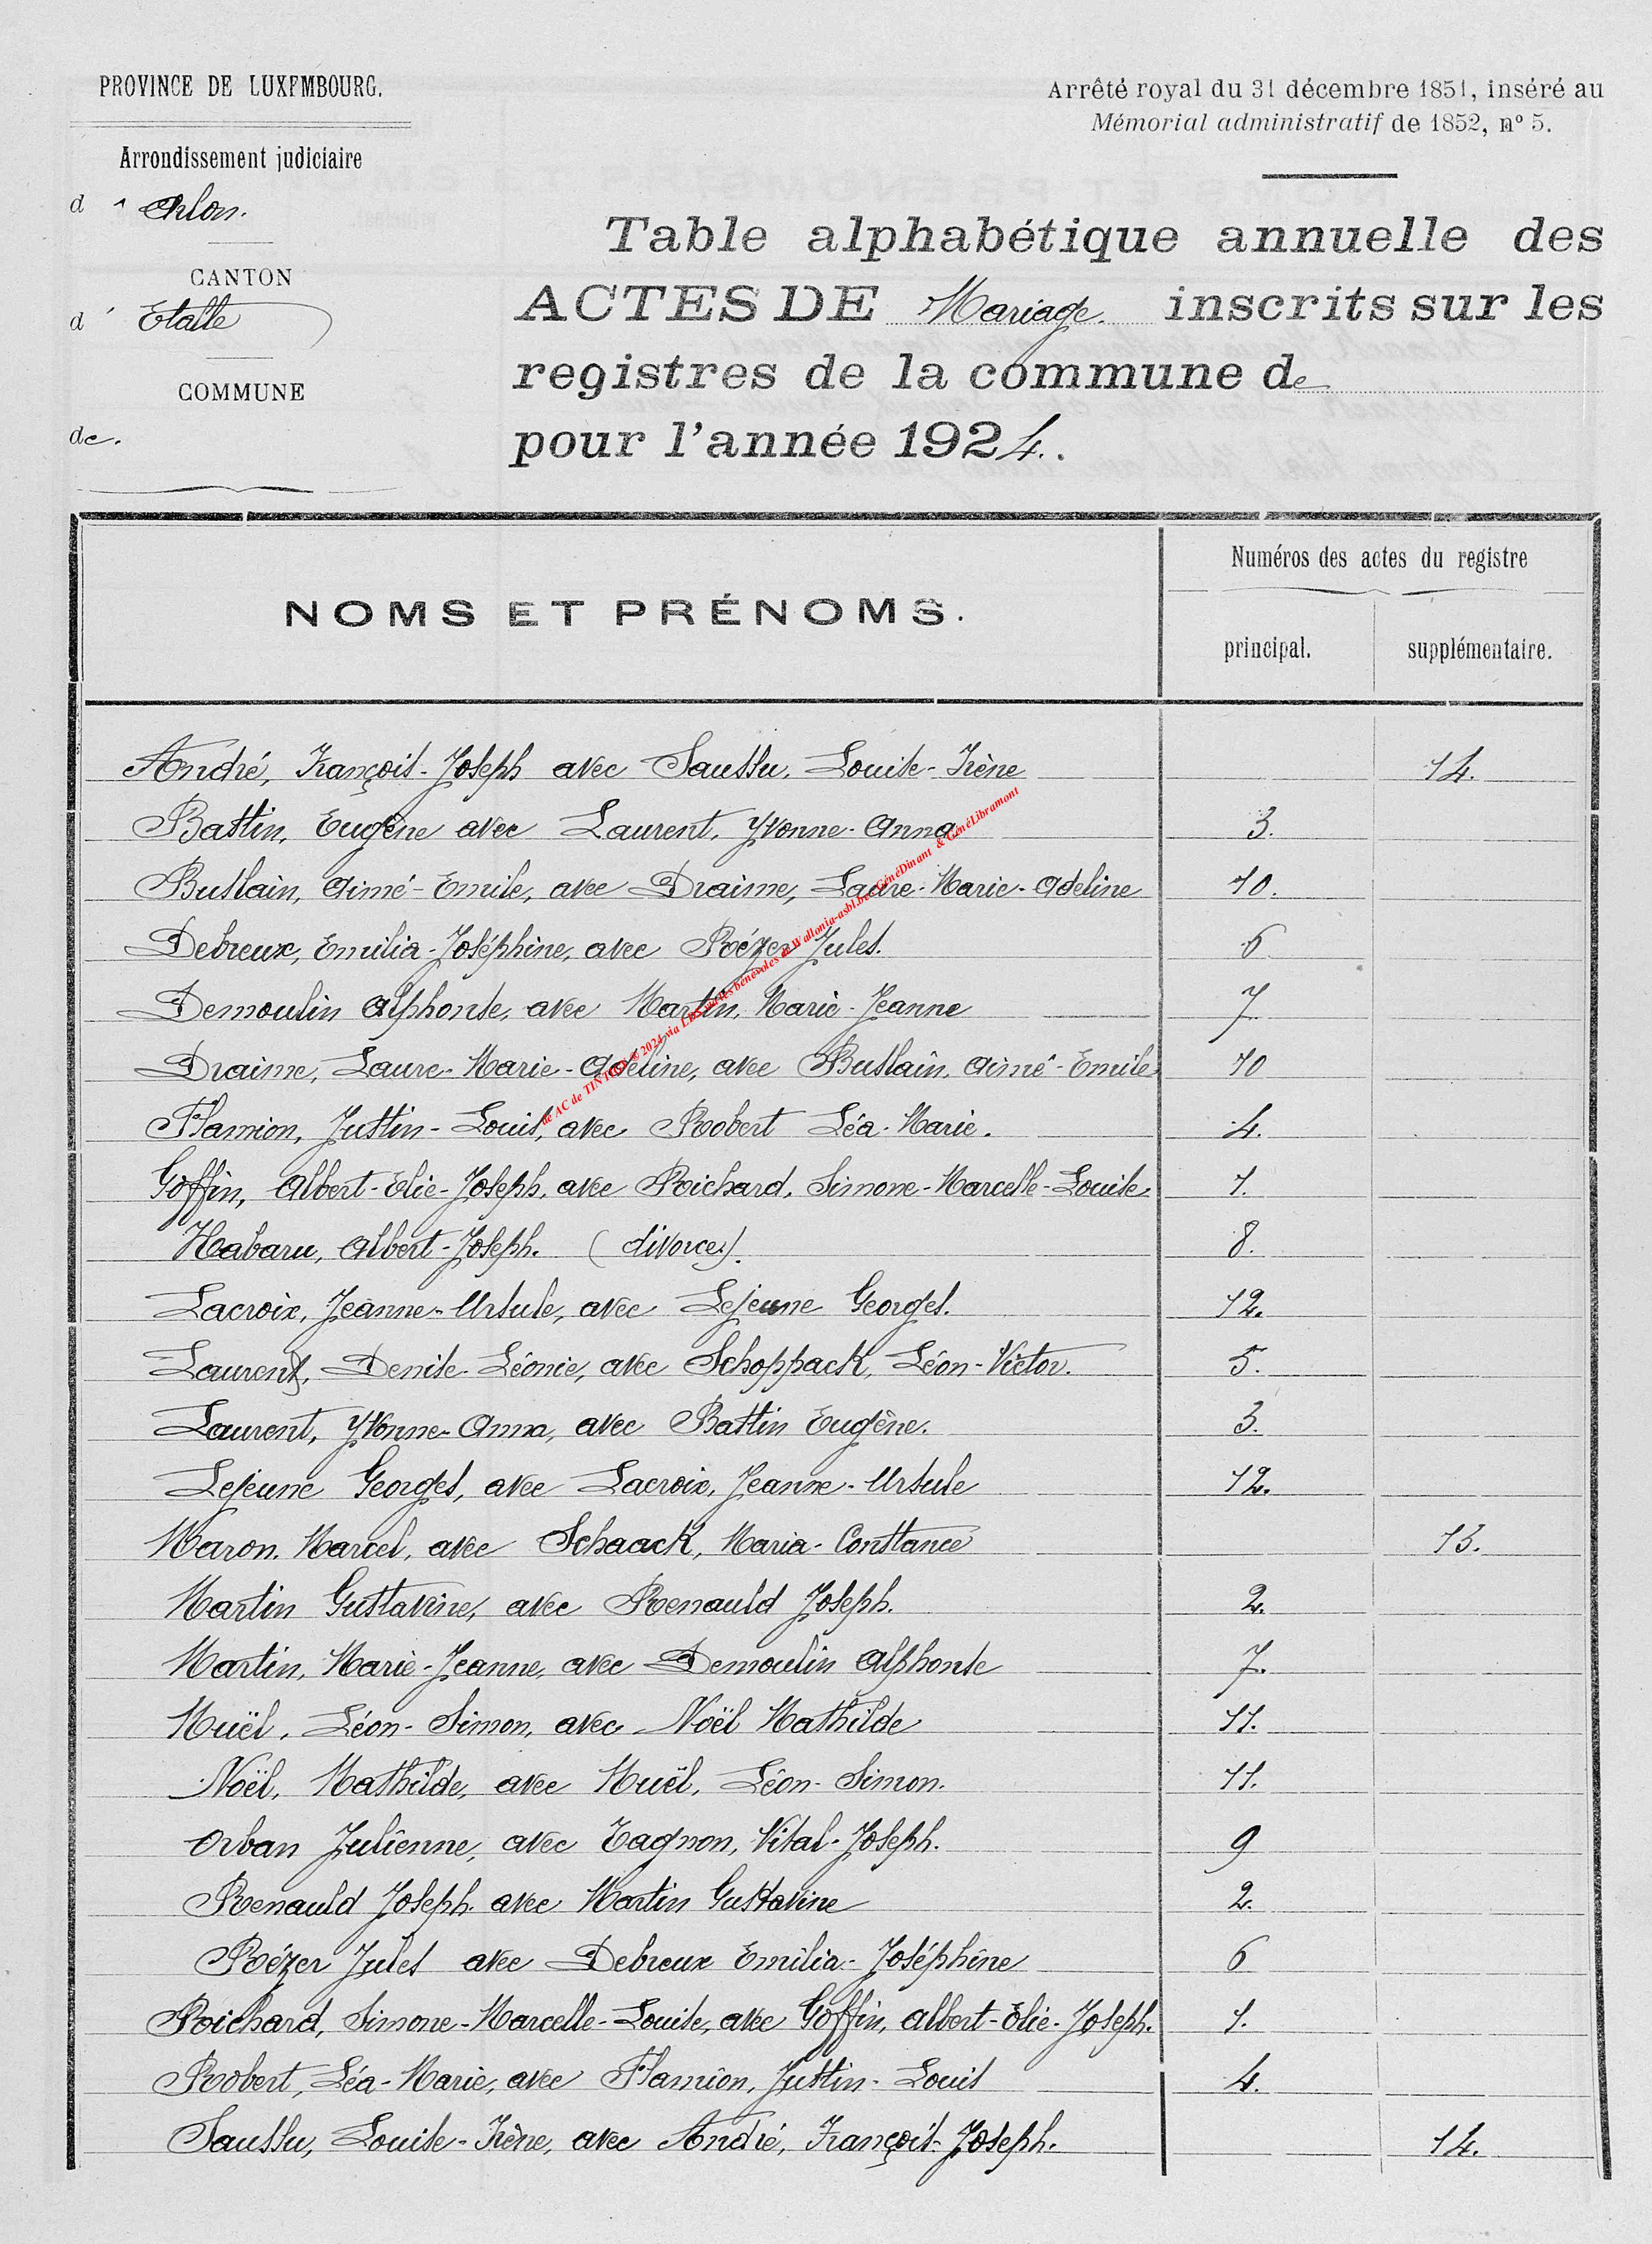 PROVINCE DE LUXEMBOURG.
Arrêté royal du 31 décembre 1851, inséré au
Mémorial administratif de 1852, nº 5.
Arrondissement judiciaire
d' Arlon.
CANTON
d' Etalle
COMMUNE
de.
Table alphabétique annuelle des
ACTES DE Mariage. inscrits sur les
registres de la commune de
pour l'année 1924.
NOMS ET PRÉNOMS.
Numéros des actes du registre
principal. supplémentaire.
André, François-Joseph avec Saussu, Louise-Irène 14.
Battin, Eugène avec Laurent, Yvonne-Anna 3.
Buslain, Aimé-Emile, avec Draime, Laure-Marie-Adeline 10.
Debreux, Emilia-Joséphine, avec Rézer Jules. 6
Demoulin Alphonse, avec Martin, Marie-Jeanne 7
Draime, Laure-Marie-Adeline, avec Buslain, Aimé-Emile 10
Flamion, Justin-Louis, avec Robert Léa-Marie. 4.
Goffin, Albert-Elie-Joseph, avec Richard, Simone-Marcelle-Louise 1.
Habaru, Albert-Joseph. (divorce). 8.
Lacroix, Jeanne-Ursule, avec Lejeune Georges. 12.
Laurent, Denise-Léonie, avec Schoppack, Léon-Victor. 5.
Laurent, Yvonne-Anna, avec Battin Eugène. 3.
Lejeune Georges, avec Lacroix, Jeanne-Ursule 12.
Maron, Marcel, avec Schaack, Maria-Constance 13.
Martin Gustavine, avec Renauld Joseph. 2.
Martin, Marie-Jeanne, avec Demoulin Alphonse 7.
Muël, Léon-Simon, avec Noël Mathilde 11.
Noël, Mathilde, avec Muël, Léon-Simon. 11.
Orban Julienne, avec Tagnon, Vital-Joseph. 9
Renauld Joseph. avec Martin Gustavine 2.
Rézer Jules avec Debreux Emilia-Joséphine 6
Richard, Simone-Marcelle-Louise, avec Goffin, Albert-Elie-Joseph. 1.
Robert, Léa-Marie, avec Flamion, Justin-Louis 4.
Saussu, Louise-Irène, avec André, François-Joseph. 14.